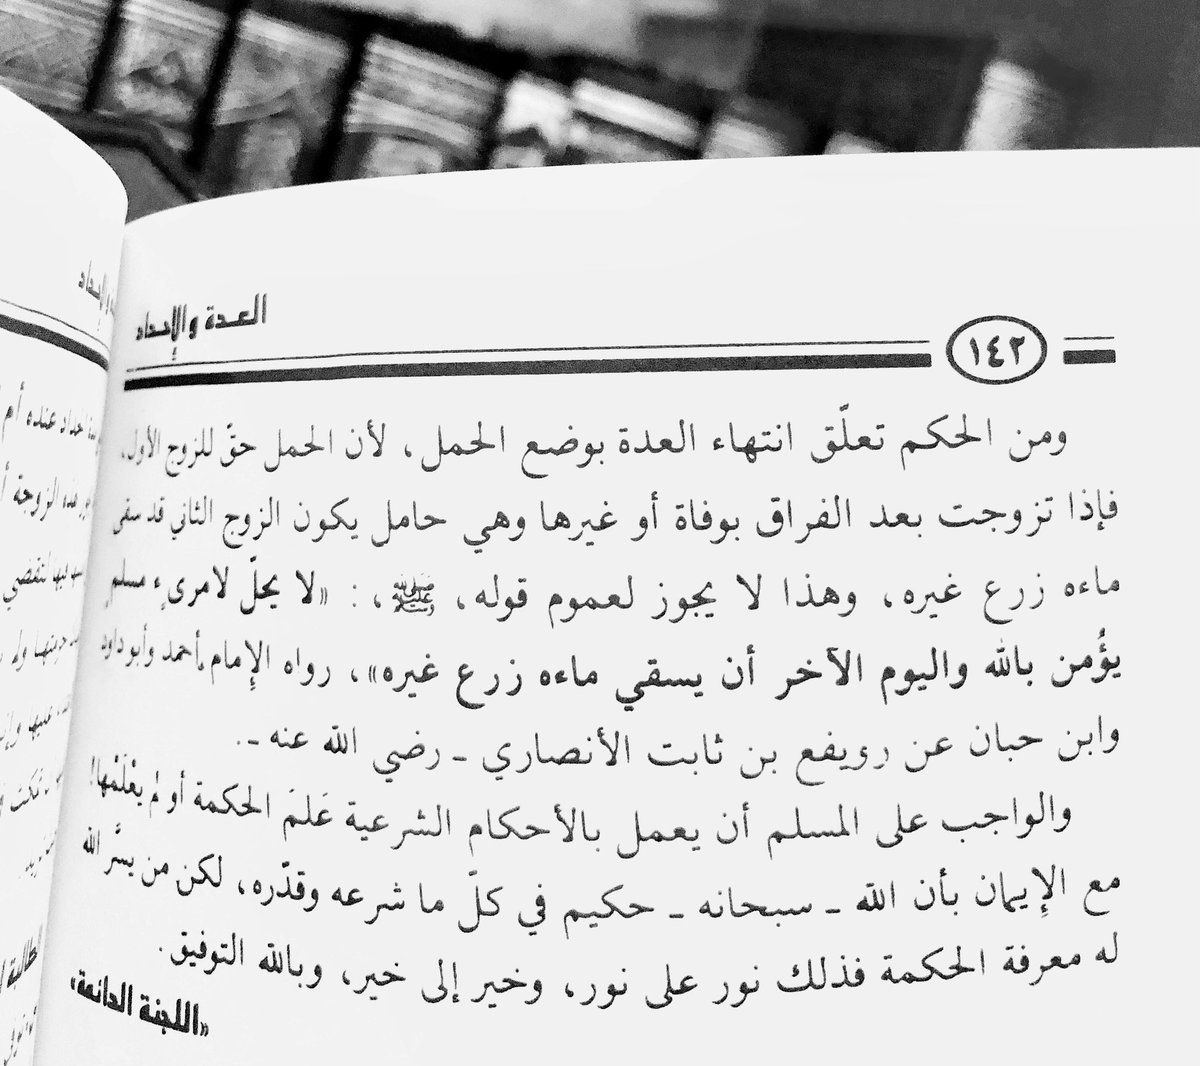 العدة والإحداد
١٤٢
ومن الحكم تعلّق انتهاء العدة بوضع الحمل، لأن الحمل حقّ للزوج الأول،
فإذا تزوجت بعد الفراق بوفاة أو غيرها وهي حامل يكون الزوج الثاني قد سقى
ماءه زرع غيره، وهذا لا يجوز لعموم قوله، ﷺ، : «لا يحلّ لامرىء مسلم
يؤمن بالله واليوم الآخر أن يسقي ماءه زرع غيره»، رواه الإمام أحمد وأبو داود
وابن حبان عن رويفع بن ثابت الأنصاري ـ رضي الله عنه ـ.
والواجب على المسلم أن يعمل بالأحكام الشرعية عَلمَ الحكمة أو لم يعْلَمْها!
مع الإِيمان بأن الله ـ سبحانه ـ حكيم في كلّ ما شرعه وقدّره، لكن من يسَّر الله
له معرفة الحكمة فذلك نور على نور، وخير إلى خير، وبالله التوفيق.
«اللجنة الدائمة»